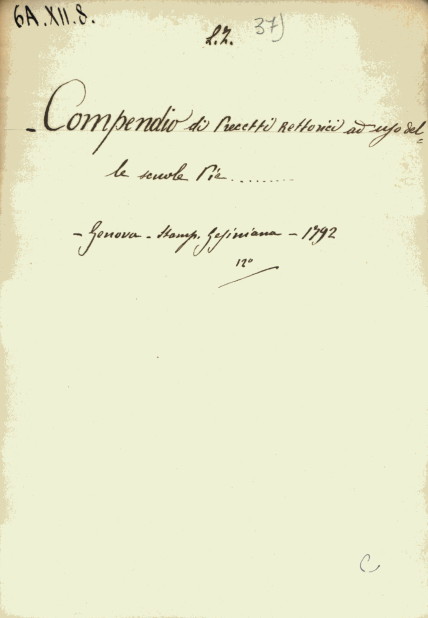 6A.XII.8.
L.Z. 37)
- Compendio di Precetti Rettorici ad uso del=
le scuole Pie.........
- Genova - Stamp. Gesiniana - 1792
12°
C